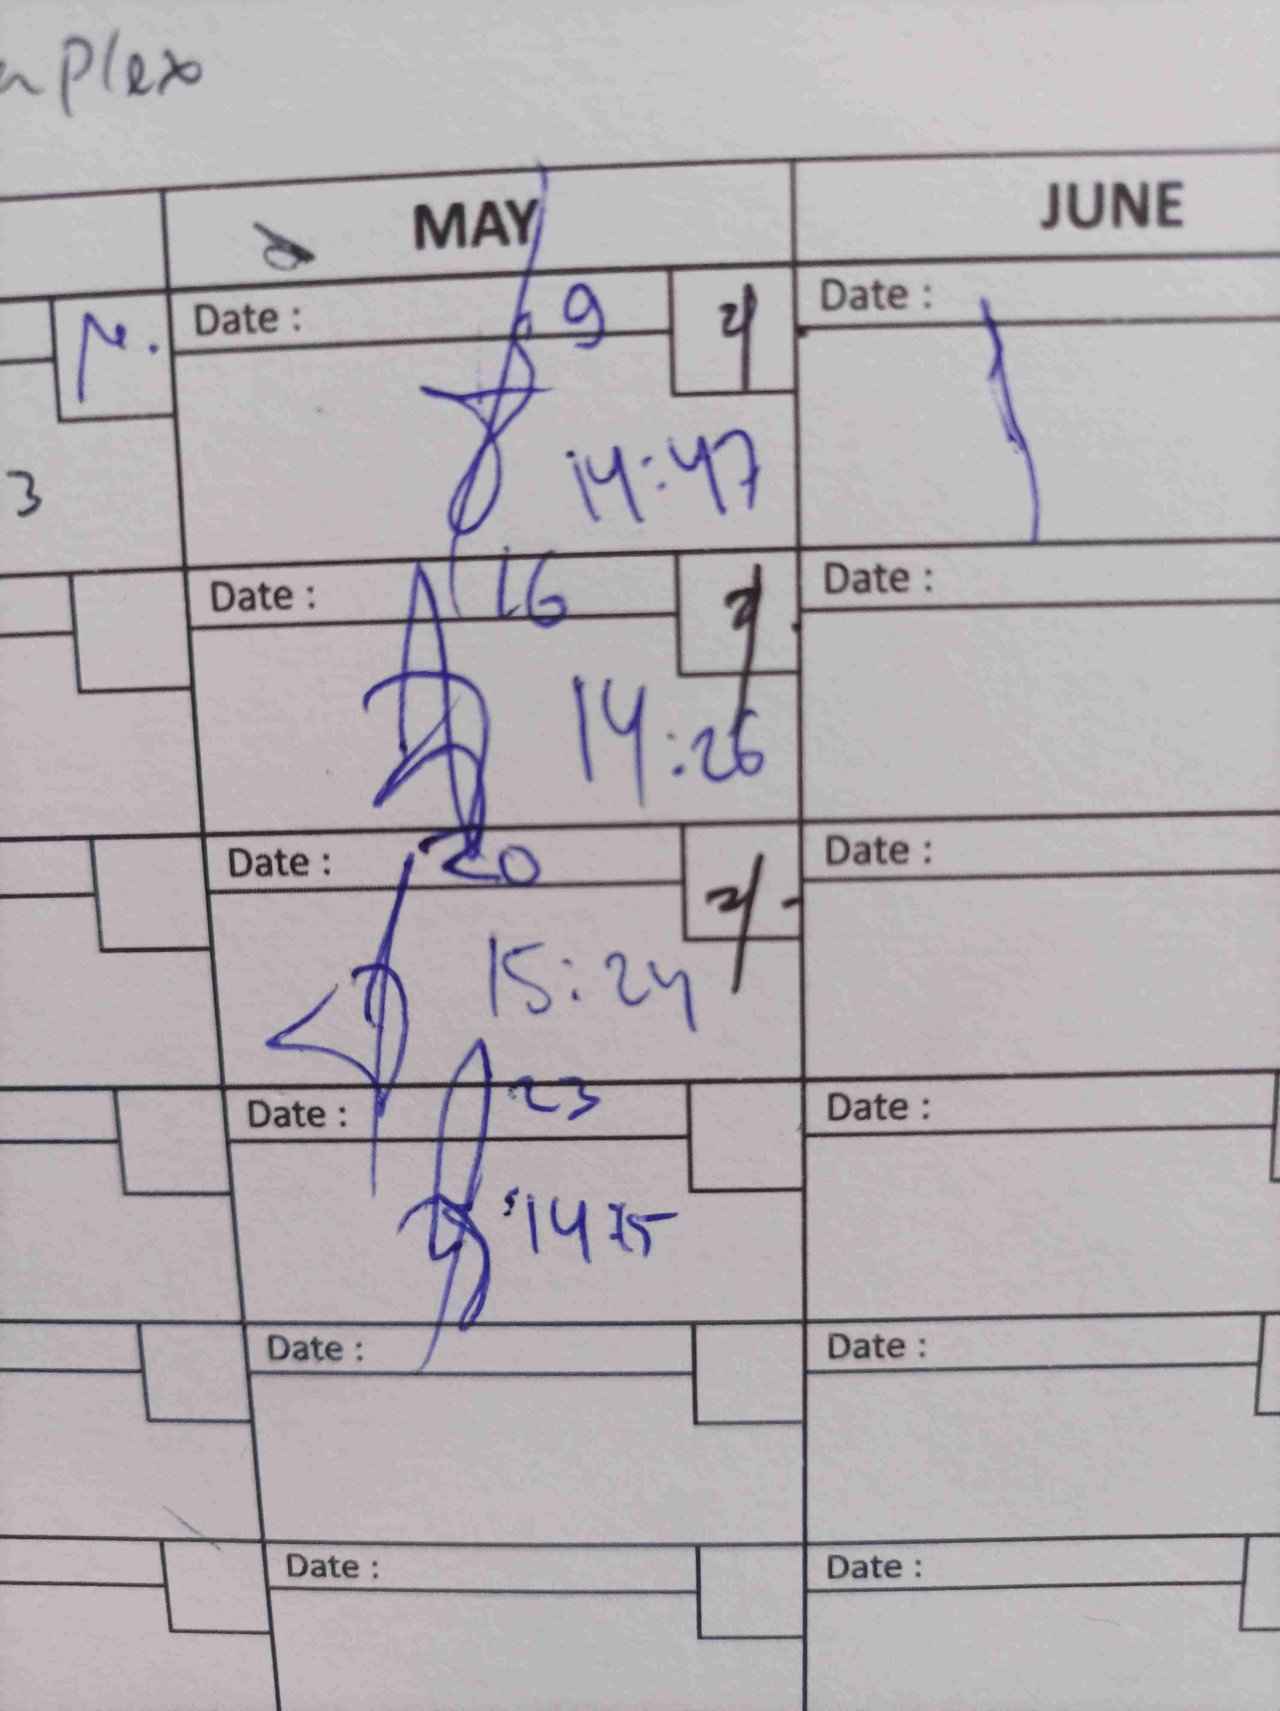 plex
MAY
JUNE
Date : 9
Date :
14:47
3
Date : 16
Date :
14:26
Date : 20
Date :
15:24
Date : 23
Date :
Date :
Date :
Date :
Date :